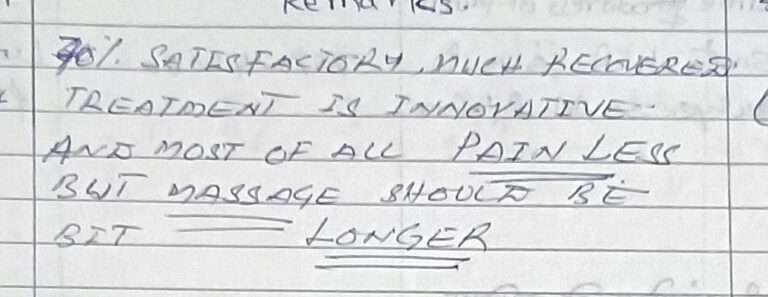 Remarks.
70% SATISFACTORY, MUCH RECOVERED.
TREATMENT IS INNOVATIVE.
AND MOST OF ALL PAIN LESS
BUT MASSAGE SHOULD BE
BIT LONGER